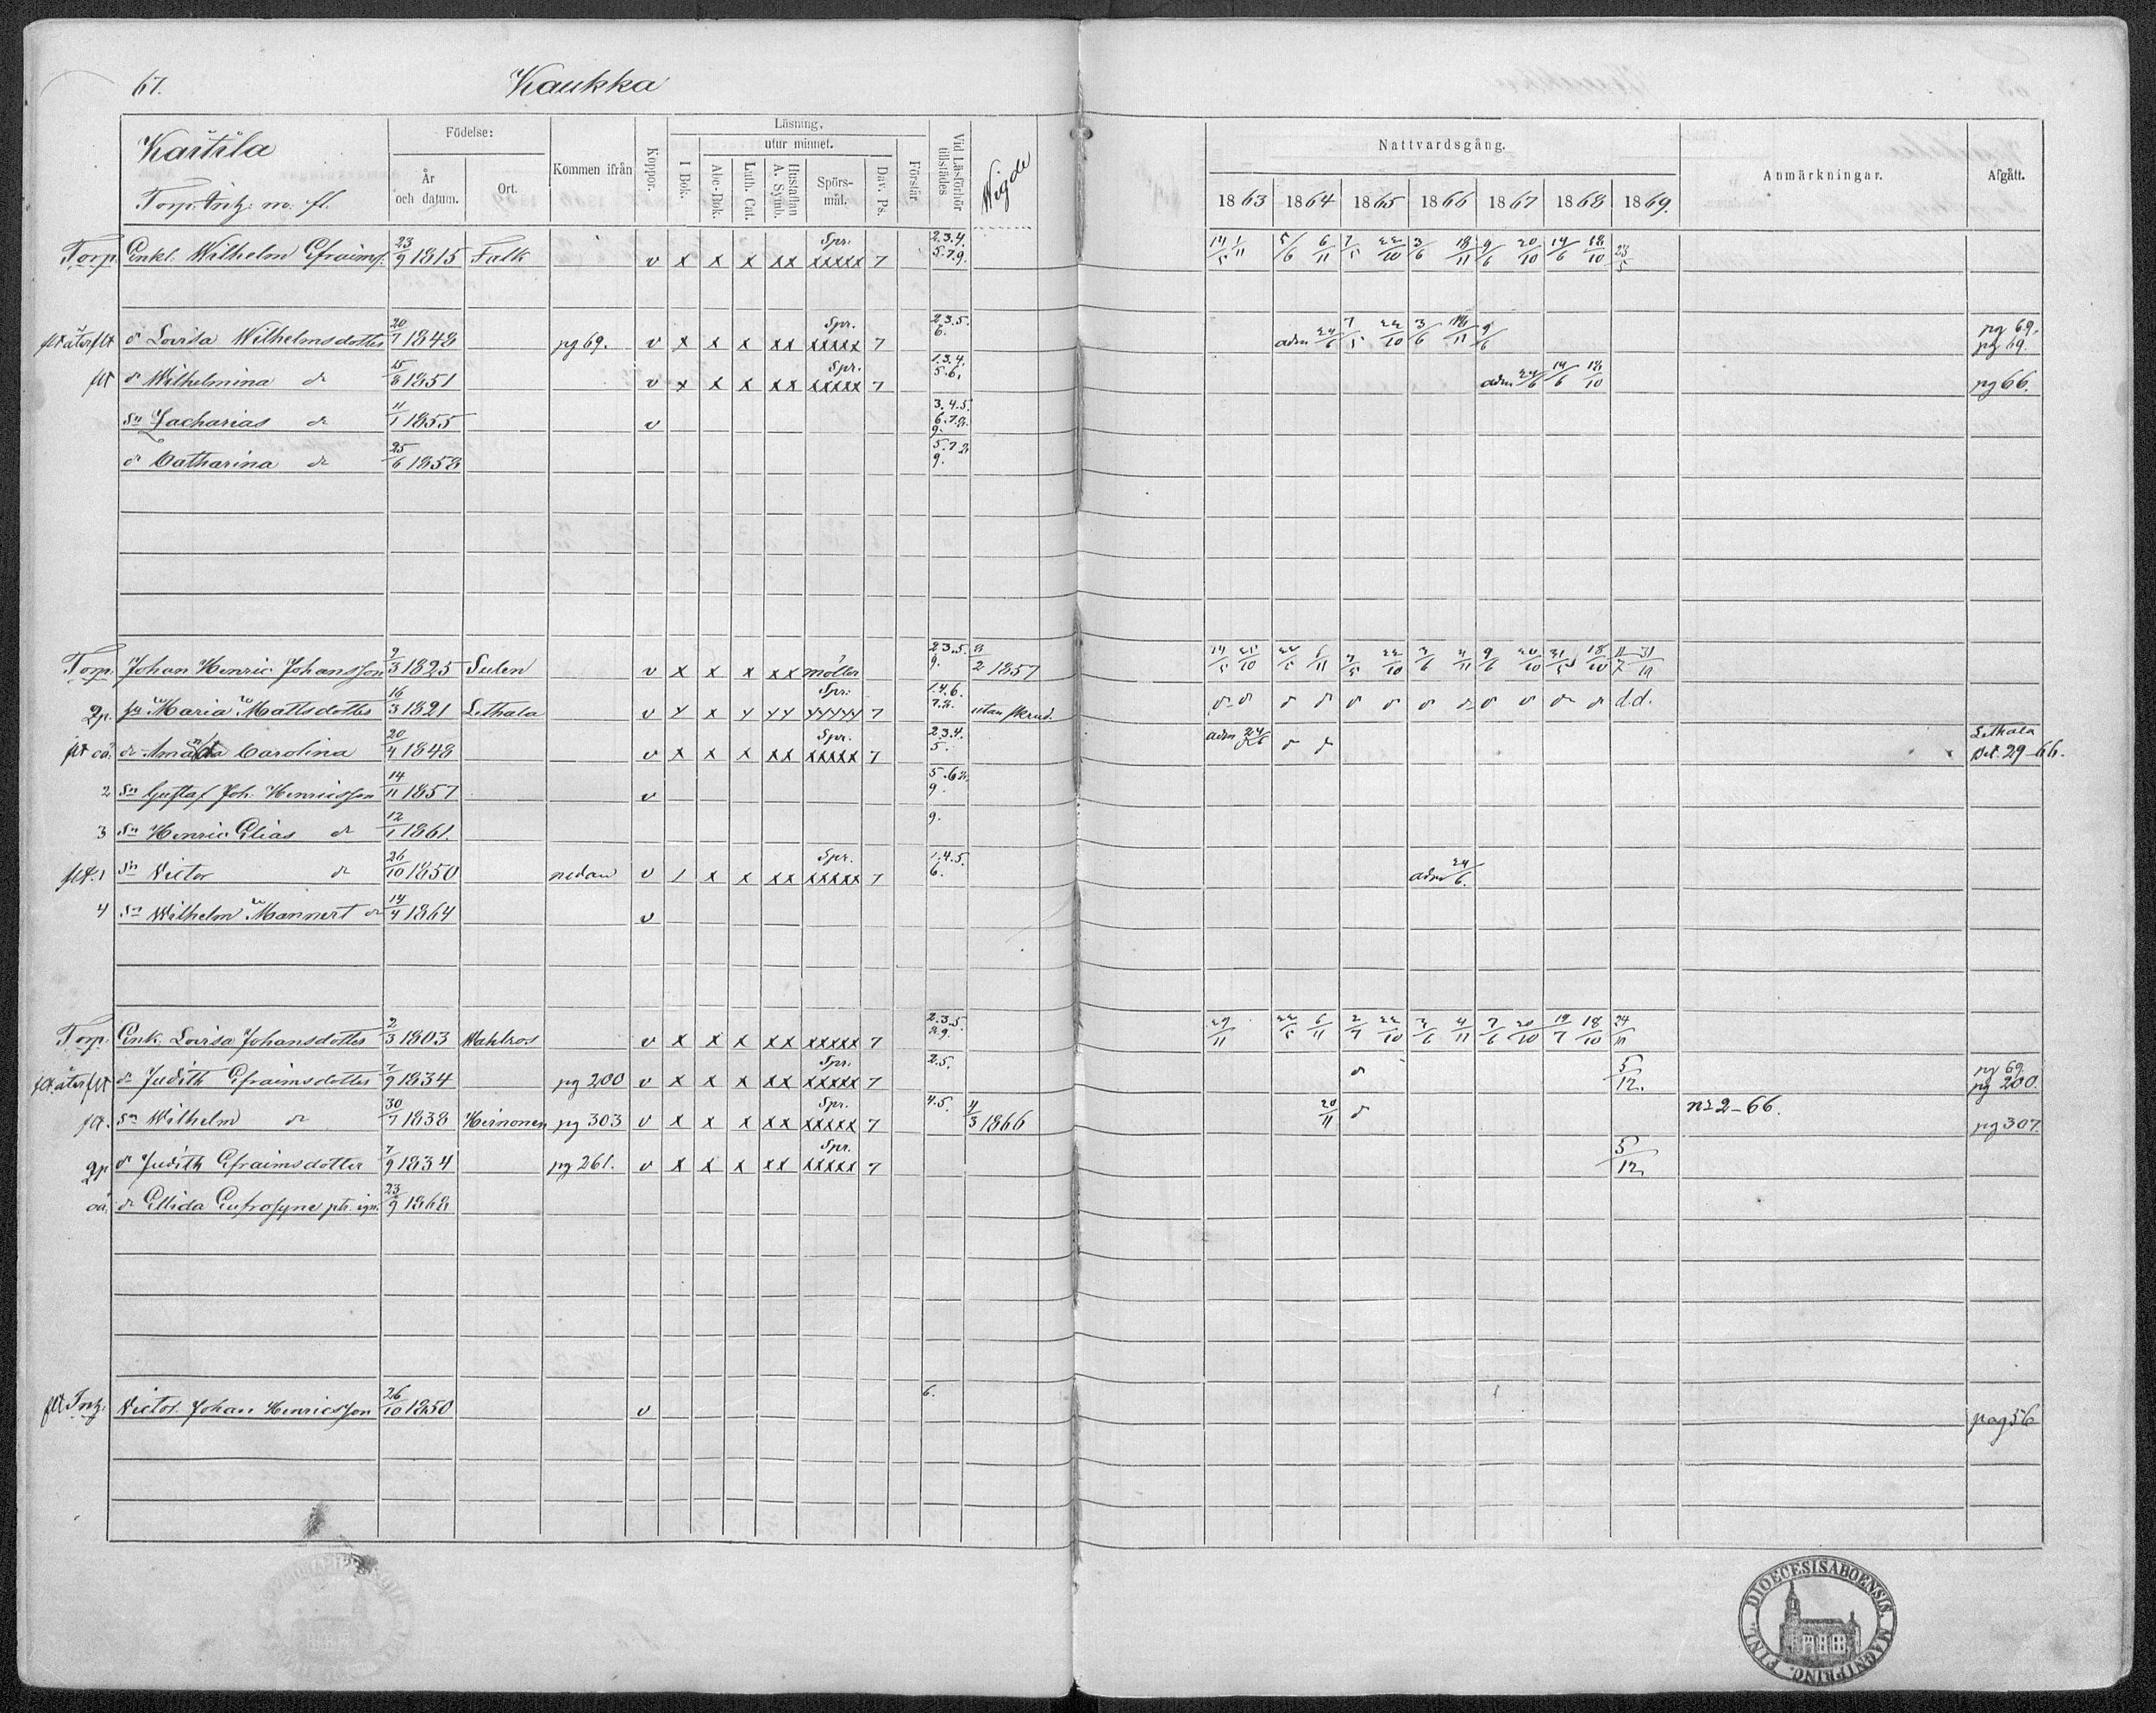 67. Kaukka
Födelse: Läsning. Nattvardsgång.
År och datum. Ort. Kommen ifrån Koppor. I Bok. utur minnet. Abc-Bok. Luth. Cat. Hustaflan A. Symb. Spörs-mål. Dav. Ps. Förstår. Vid Läsförhör tillstädes Wigde 1863 1864 1865 1866 1867 1868 1869. Anmärkningar. Afgått.
Torp. Enkl. Wilhelm Efraimss. 23/9 1815 Falk v x x x xx Spr. xxxxx 7 2.3.4. 5.7.9. 14/5 1/11 5/6 6/11 7/5 22/10 3/6 18/11 9/6 20/10 14/6 18/10 23/5
flt åter flt dr Lovisa Wilhelmsdotter 20/7 1848 pg 69. v x x x xx Spr. xxxxx 7 2.3.5. 6. adm 24/6 7/5 22/10 3/6 18/11 9/6 pg 69. pg 69.
flt dr Wilhelmina dr 15/8 1851 v x x x xx Spr. xxxxx 7 1.3.4. 5.6. adm 24/6 14/6 18/10 pg 66.
Sn Zacharias dr 11/1 1855 v 3.4.5. 6.7.8. 9.
dr Catharina dr 25/6 1858 5.7.8. 9.
Torp. Johan Henric Johansson 2/3 1825 Sulen v x x x xx 2.3.5. 9. 8/2 1857
2p. Maria Mattsdotter 16/3 1821 Lethala v x x x xx Spr: xxxxx 7 1.4.6. 7.8. utan skrud. d.d.
dr Amanda Carolina 20/4 1848 v x x x xx Spr. xxxxx 7 2.3.4. 5. adm 24/6 Lethala Bet. 29-66.
2 Sn Gustaf Joh. Henricsson 14/11 1857 v 5.6.8. 9.
3 Sn Henric Elias dr 12/1 1861. 9.
flt. 1 Sn Victor dr 26/10 1850 nedan v / x x xx Spr. xxxxx 7 1.4.5. 6. adm 24/6.
4 Sn Wilhelm Mannert dr 14/4 1864 v
Torp. Enk. Lovisa Johansdotter 2/3 1803 Wahlros v x x x xx xxxxx 7 2.3.5. 8.9. 29/11 22/5 6/11 2/7 22/10 3/6 4/11 7/6 20/10 19/7 18/10
flt åter flt dr Judith Efraimsdotter 7/9 1834 pg 200 v x x x xx Spr. xxxxx 7 2.5. 5/12. pg 69. pg 200.
flt. Sn Wilhelm dr 30/7 1838 Heinonen pg 303 v x x x xx Spr. xxxxx 7 4.5. 4/3 1866 20/11 nr 2-66. pg 307.
2p dr Judith Efraimsdotter 7/9 1834 pg 261. v x x x xx Spr. xxxxx 7 5/12
oä. dr Ellida Eufrosyne ptr. ign. 23/9 1868
flt Inh. Victor Johan Henricsson 26/10 1850 v 6. pag 56
FINL. DIOECESIS ABOENSIS MAGNI PRINC.